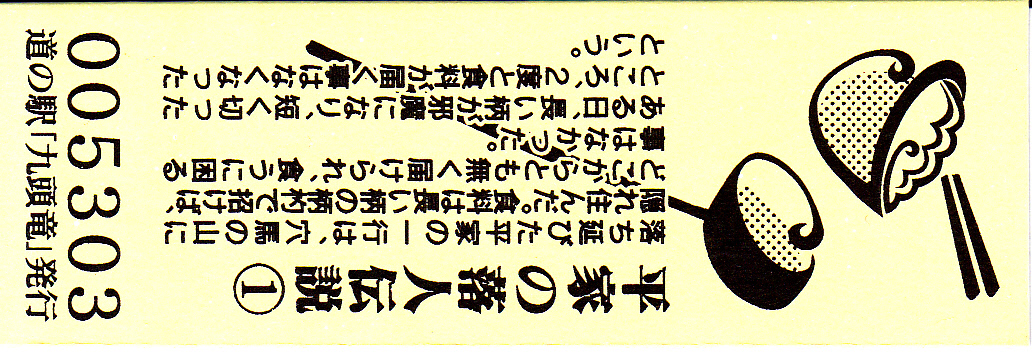 平家の落人伝説①
落ち延びた平家の一行は、穴馬の山に
隠れ住んだ。食料は長い柄の柄杓で招けば、
どこからとも無く届けられ、食うに困る
事はなかった。
ある日、長い柄が邪魔になり、短く切った
ところ、2度と食料が届く事はなくなった
という。
005303
道の駅「九頭竜」発行